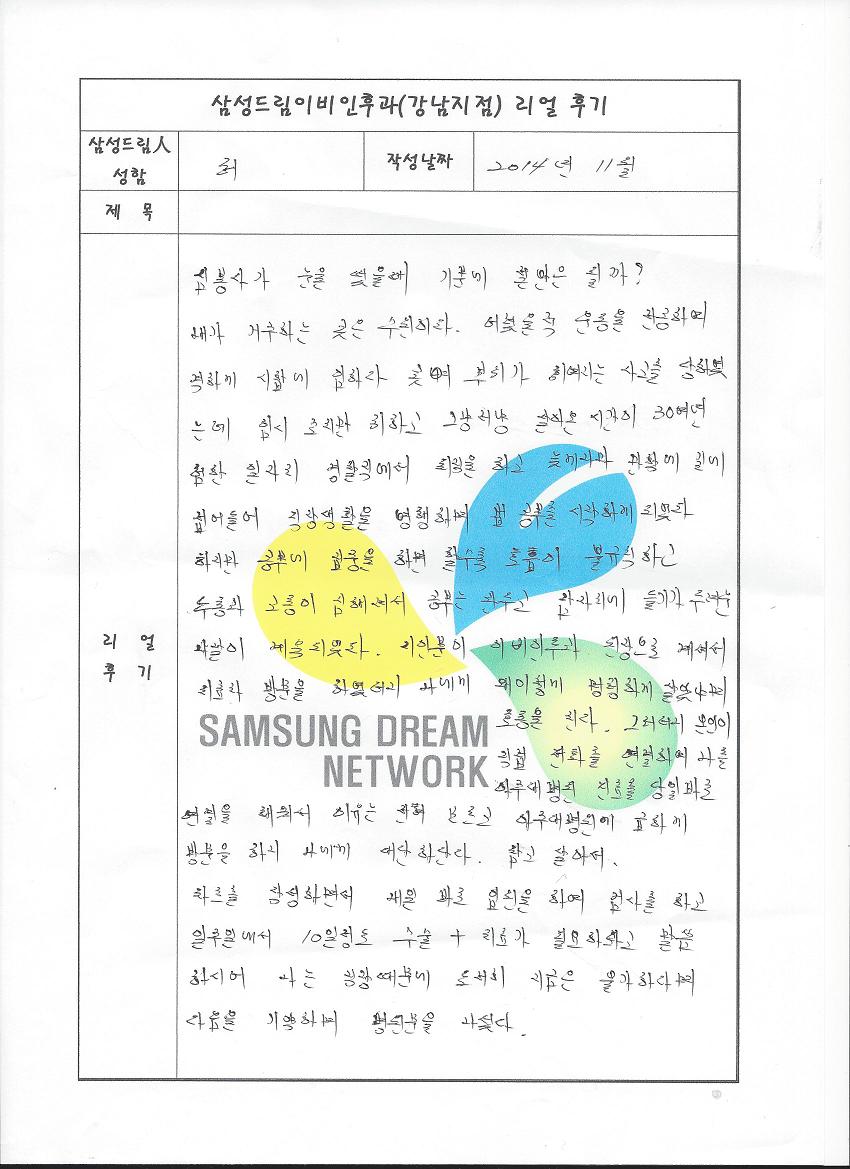 삼성드림이비인후과(강남지점) 리얼 후기
삼성드림人
성함
최
작성날짜
2014년 11월
제 목
리 얼
후 기
심봉사가 눈을 떴을때 기분이 흔만은 될까?
내가 거주하는 곳은 수원이다. 어렸을적 운동을 전공하여
격하게 시합에 임하다 콧대 부위가 휘어지는 사고를 당하였
는데 임시 조치만 취하고 그냥저냥 살아온 시간이 30여년
험한 일자리 경찰직에서 퇴직을 하고 늦게나마 만학에 길에
접어들어 직장생활을 병행하며 밤 공부를 시작하게 되었다
하지만 공부에 집중을 하면 할수록 호흡이 불규칙하고
두통과 고통이 심해져서 공부는 관두고 잠자리에 들기가 두려운
나날이 계속되었다. 지인분이 이비인후과 전공으로 계셔서
치료차 방문을 하였더니 나에게 왜이렇게 멍청하게 살았냐며
호통을 친다. 그러더니 본인이
직접 전화를 연결하여 나를
아주대병원 진료를 당일바로
연결을 해줘서 이유는 전혀 모르고 아주대병원에 급하게
방문을 하니 나에게 대단하단다. 참고 살아서.
차트를 작성하면서 내일 바로 입원을 하여 검사를 하고
일주일에서 10일정도 수술 + 치료가 필요하다고 말씀
하시어 나는 직장때문에 도저히 지금은 불가하다며
다음을 기약하며 병원문을 나섰다.
SAMSUNG DREAM
NETWORK